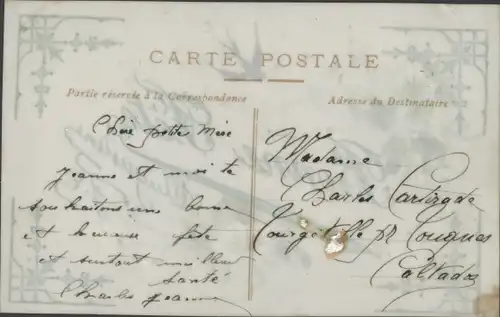 CARTE POSTALE
Partie réservée à la Correspondance
Adresse du Destinataire
Chère petite Mère
Jeanne et moi te
souhaitons une bonne
et heureuse fête
et surtout meilleure
santé
Charles Jeanne
Madame
Charles
Tourgéville pr Touques
Calvados